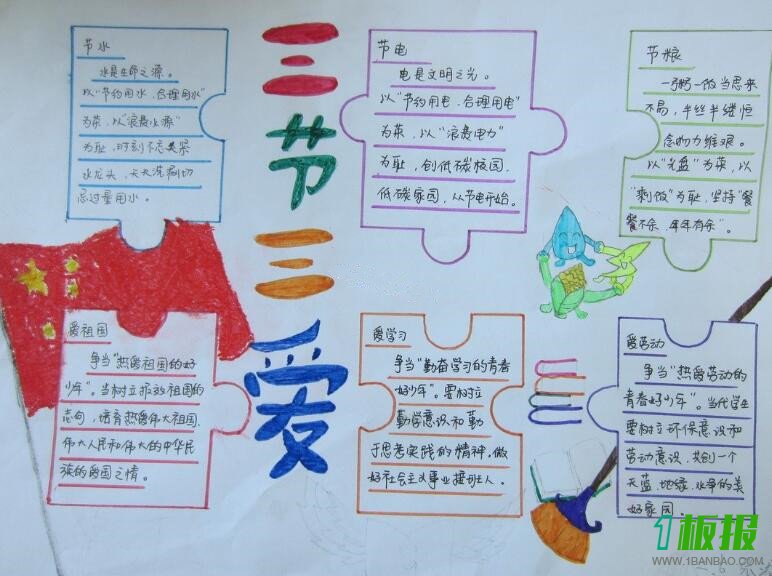 三节三爱
节水
水是生命之源。
以"节约用水、合理用水"
为荣,以"浪费水源"
为耻,时刻不忘关紧
水龙头,天天洗刷切
忌过量用水。
节电
电是文明之光。
以"节约用电、合理用电"
为荣,以"浪费电力"
为耻,创低碳校园,
低碳家园,从节电开始。
节粮
一粥一饭当思来
不易,半丝半缕恒
念物力维艰。
以"光盘"为荣,以
"剩饭"为耻,坚持"餐
餐不余、年年有余"。
爱祖国
争当"热爱祖国的好
少年"。当树立报效祖国的
志向,培育热爱伟大祖国、
伟大人民和伟大的中华民
族的爱国之情。
爱学习
争当"勤奋学习的青春
好少年"。要树立
勤学意识和勤
于思考实践的精神,做
好社会主义事业接班人。
爱劳动
争当"热爱劳动的
青春好少年"。当代学生
要树立环保意识和
劳动意识,共创一个
天蓝、地绿、水净的美
好家园。
1板报
WWW.1BANBAO.COM